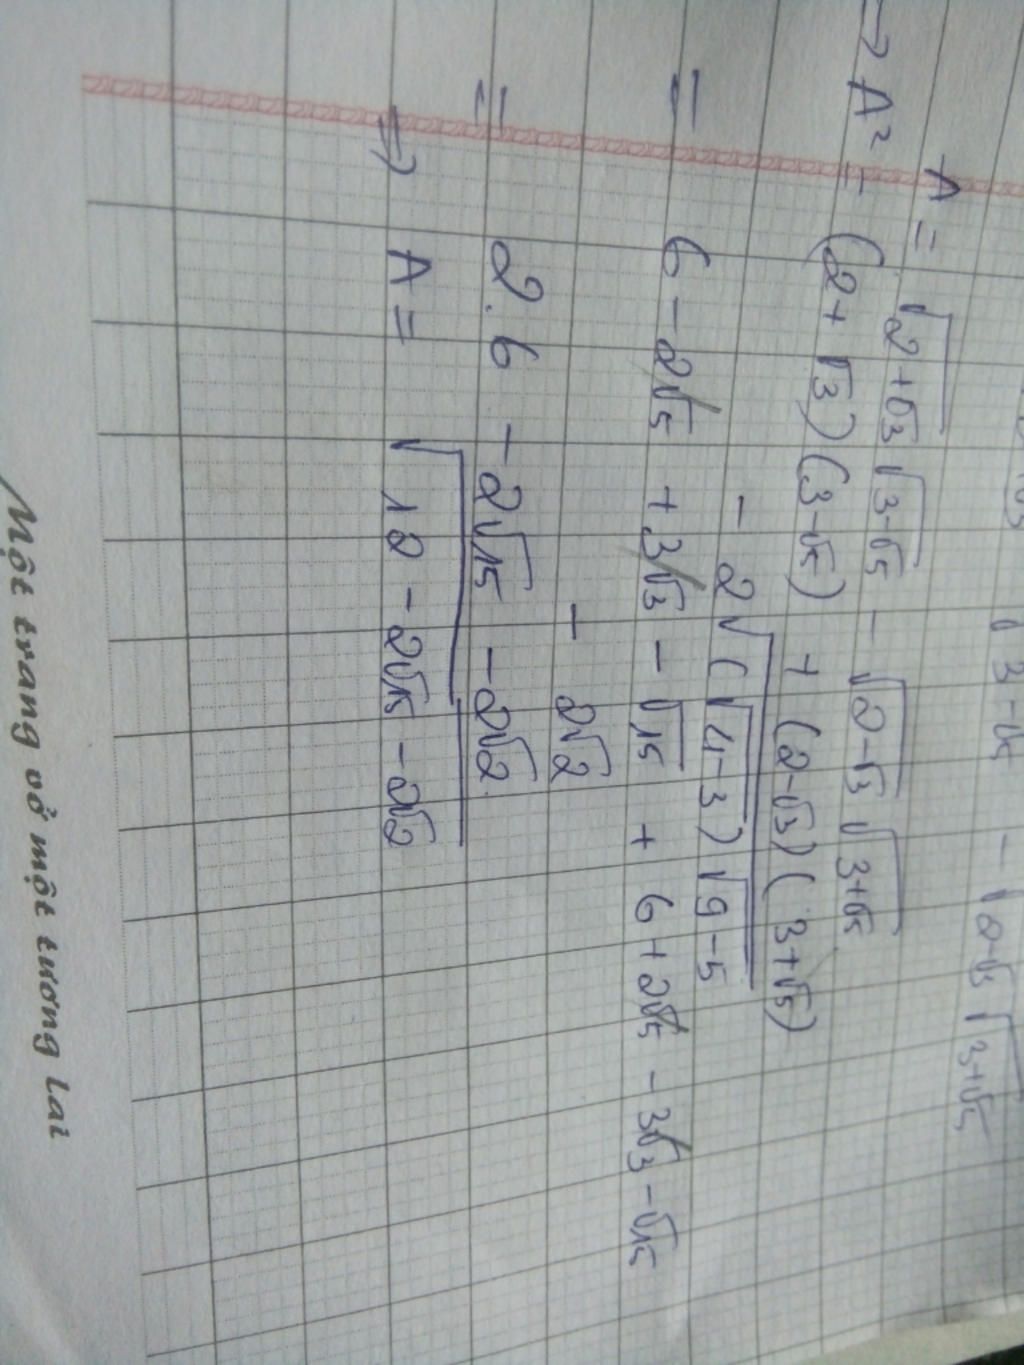 √3-√5 - √2-√3 √3+√5
A = √2+√3 √3-√5 - √2-√3 √3+√5
=> A² = (2+√3)(3-√5) + (2-√3)(3+√5)
- 2√(√4-3)√9-5
= 6 - 2√5 + 3√3 - √15 + 6 + 2√5 - 3√3 - √15
- 2√2
= 2.6 - 2√15 - 2√2
=> A = √12 - 2√15 - 2√2
Một trang vở một tương lai